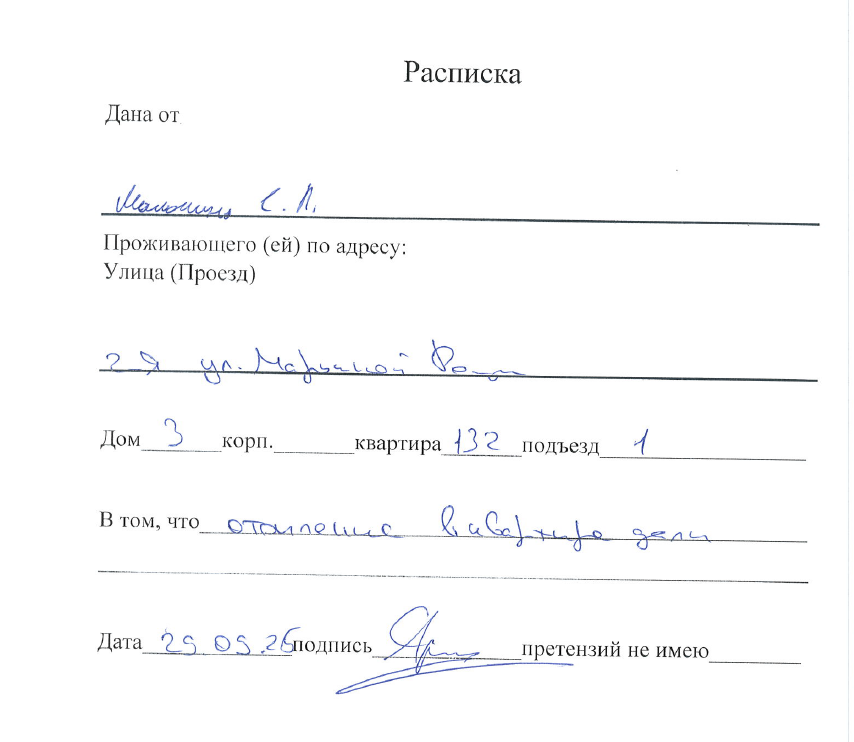 Расписка
Дана от
С. Л.
Проживающего (ей) по адресу:
Улица (Проезд)
2-я ул. Марьиной Рощи
Дом 3 корп.______ квартира 132 подъезд 1
В том, что отопление в квартире дали
Дата 29.09.25 подпись ______ претензий не имею______